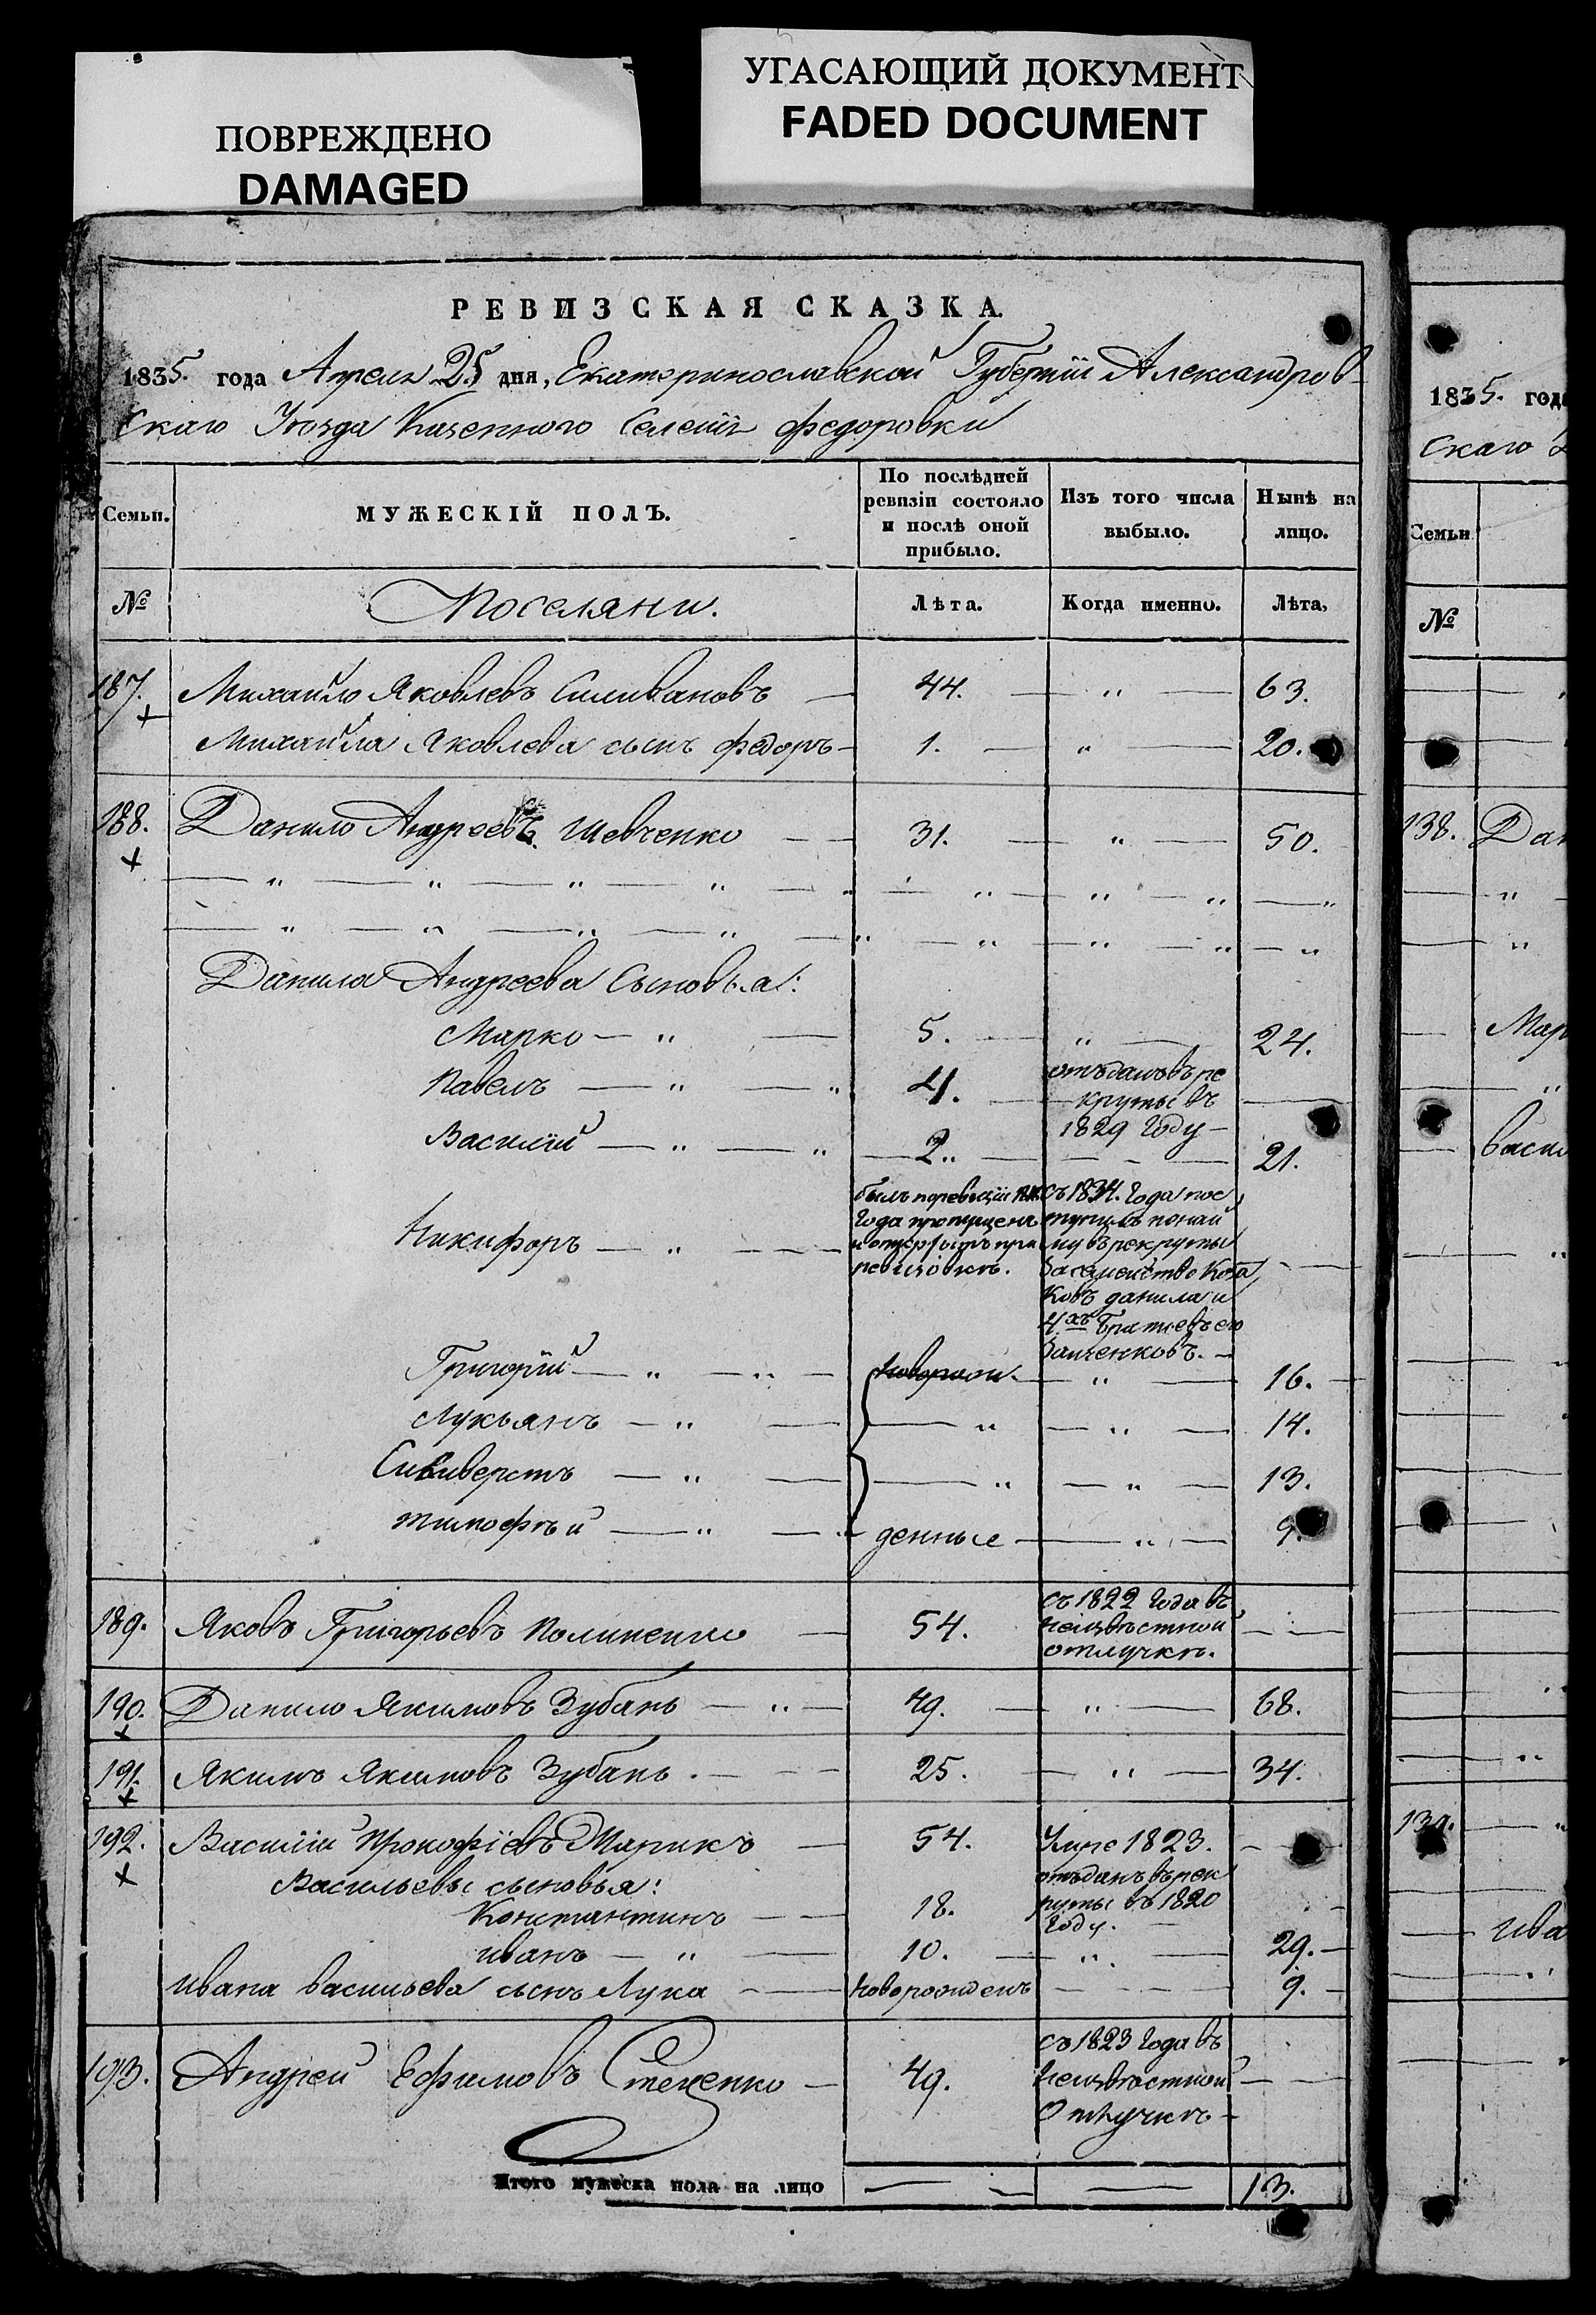 ПОВРЕЖДЕНО
DAMAGED
УГАСАЮЩИЙ ДОКУМЕНТ
FADED DOCUMENT
РЕВИЗСКАЯ СКАЗКА.
1835. года Апреля 25 дня, Екатеринославской Губернiи Александров-
скаго Уѣзда Казенного Селенiя Федоровки
Семьи. МУЖЕСКIЙ ПОЛЪ. По послѣдней ревизiи состояло и послѣ оной прибыло. Изъ того числа выбыло. Нынѣ на лицо.
№ Поселяни. Лѣта. Когда именно. Лѣта,
187. Михайло Яковлевъ Силивановъ — 44. — " — 63.
Михайла Яковлева сынъ Федоръ — 1. — " — 20.
188. Данило Андреевъ Шевченко — 31. — " — 50.
Данила Андреева Сыновья:
Марко — " — 5. — " — 24.
Павелъ — " — 4. — отъданъ въ ре
круты въ
1829 году —
Василiй — " — 2. — 21.
Никифоръ — " —
былъ по ревизiи
года пропущенъ
ревизовкѣ.
съ 1834. Года пос
тупилъ по най
му въ рекруты
за семейство Коза
ковъ данила и
4хъ Братьевъ его
Григорiй — " — новорож — " — 16.
Лукьянъ — " — " — " — 14.
Сививерстъ — " — " — " — 13.
Тимофѣй — " — денные — " — 9.
189. Яковъ Григорьевъ — 54.
съ 1822 Года въ
неизвѣстной
отлучкѣ.
190. Данило Якимовъ Зубань — " — 49. — " — 68.
191. Якимъ Якимовъ Зубань. — 25. — " — 34.
192. Василiй Прокофiевъ Шарикъ — 54. Умре 1823. —
Васильевы сыновья:
Константинъ — 18.
отъданъ въ рек
руты въ 1820
Году.
иванъ — " — 10. — " — 29. —
ивана васильева сынъ Лука — новорожденъ — 9. —
193. Андрей Ефимовъ Стеценко — 49.
съ 1823 Года въ
неизвѣстной
Отлучкѣ —
Итого мужеска пола на лицо — — 13.
1835. год
скаго
Семьи
№
138. Дан
Мар
васи
139.
ива